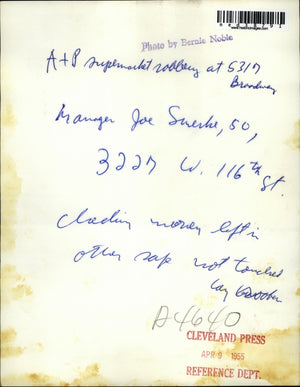 Photo by Bernie Noble
A+P supermarket robbery at 5317
Broadway
Manager Joe 50,
3227 W. 116th
St.
checking money left in
other safe not touched
by
A4640
CLEVELAND PRESS
APR 9 1955
REFERENCE DEPT.